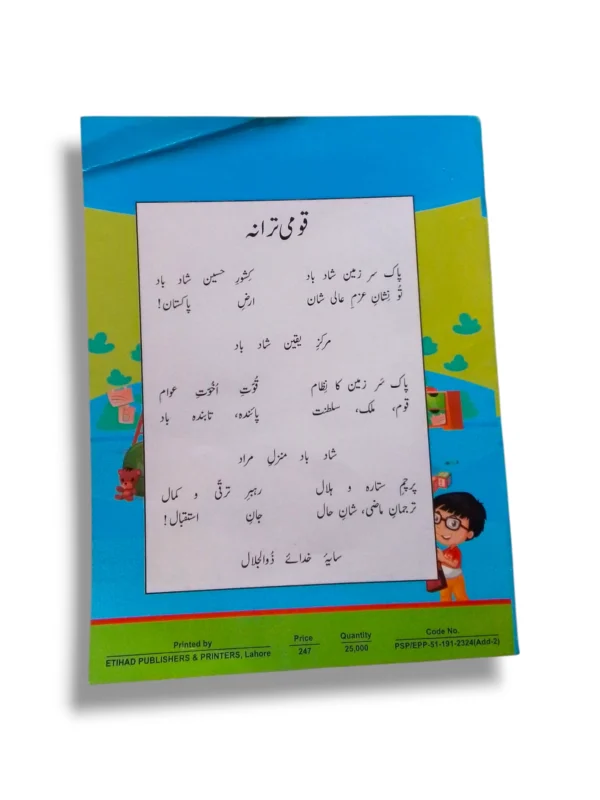 قومی ترانہ
پاک سر زمین شاد باد کِشورِ حسین شاد باد
تُو نِشانِ عزمِ عالی شان ارضِ پاکستان!
مرکزِ یقین شاد باد
پاک سَر زمین کا نِظام قُوّتِ اُخُوّتِ عوام
قوم، ملک، سلطنت پائندہ، تابندہ باد
شاد باد منزلِ مراد
پرچمِ ستارہ و ہلال رہبرِ ترقّی و کمال
ترجمانِ ماضی، شانِ حال جانِ استقبال!
سایۂ خدائے ذُوالجلال
Printed by Price Quantity Code No.
ETIHAD PUBLISHERS & PRINTERS, Lahore 247 25,000 PSP/EPP-51-191-2324(Add-2)